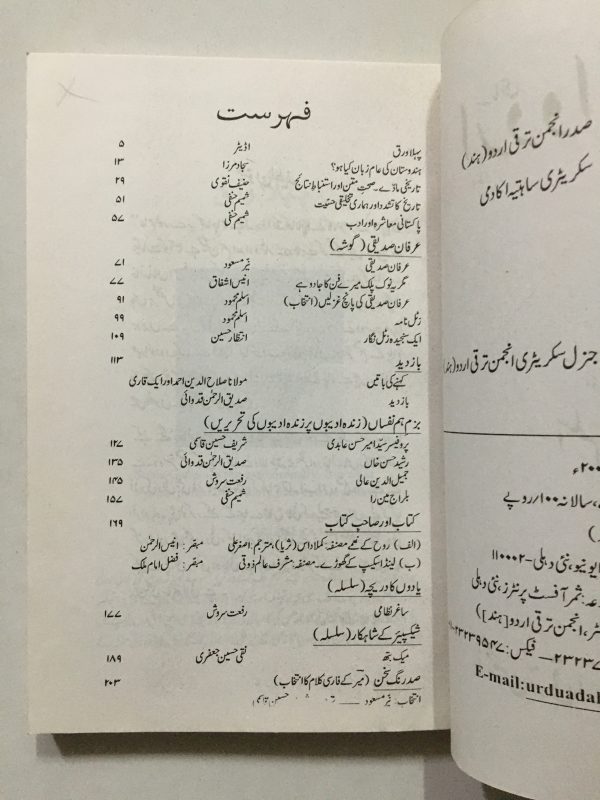 فہرست
پہلا ورق اڈیٹر ۵
ہندوستان کی عام زبان کیا ہو؟ سجاد مرزا ۱۳
تاریخی مادّے۔ صحتِ متن اور استنباطِ نتائج حنیف نقوی ۲۹
تاریخ کا تشدد اور ہماری تخلیقی حسیت شمیم حنفی ۵۱
پاکستانی معاشرہ اور ادب شمیم حنفی ۵۷
عرفان صدیقی (گوشہ)
عرفان صدیقی نیّر مسعود ۷۱
مگر یہ نوک پلک میرے فن کا جادو ہے انیس اشفاق ۷۷
عرفان صدیقی کی پانچ غزلیں (انتخاب) اسلم محمود ۹۱
زٹل نامہ اسلم محمود ۹۹
ایک سنجیدہ زٹل نگار انتظار حسین ۱۰۹
بازدید ۱۱۳
کہنے کی باتیں مولانا صلاح الدین احمد اور ایک قاری
بازدید صدیق الرحمٰن قدوائی
بزم ہم نفساں (زندہ ادیبوں پر زندہ ادیبوں کی تحریریں)
پروفیسر سیّد امیر حسن عابدی شریف حسین قاسمی ۱۲۷
رشید حسن خاں صدیق الرحمٰن قدوائی ۱۳۵
جمیل الدین عالی رفعت سروش ۱۴۵
بلراج مین را شمیم حنفی ۱۵۷
کتاب اور صاحبِ کتاب ۱۶۹
(الف) روح کے نغمے مصنفہ: کملا داس (ثریا)، مترجم: اصغر علی مبصّر: انیس الرحمٰن
(ب) لینڈ اسکیپ کے گھوڑے۔ مصنفہ: مشرف عالم ذوقی مبصّر: فضل امام ملک
یادوں کا دریچہ (سلسلہ)
ساغر نظامی رفعت سروش ۱۷۷
شیکسپیئر کے شاہکار (سلسلہ)
میک بتھ نقی حسین جعفری ۱۸۹
صد رنگ سخن (میرؔ کے فارسی کلام کا انتخاب) ۲۰۳
انتخاب: نیّر مسعود
صدر انجمن ترقی اردو (ہند)
سکریٹری ساہتیہ اکادمی
جنرل سکریٹری انجمن ترقی اردو (ہند)
سالانہ ۱۰۰/ روپے
یونیو، نئی دہلی-۱۱۰۰۰۲
ثمر آفسٹ پرنٹرز، نئی دہلی
انجمن ترقی اردو [ہند]
فیکس:
E-mail:urduadab